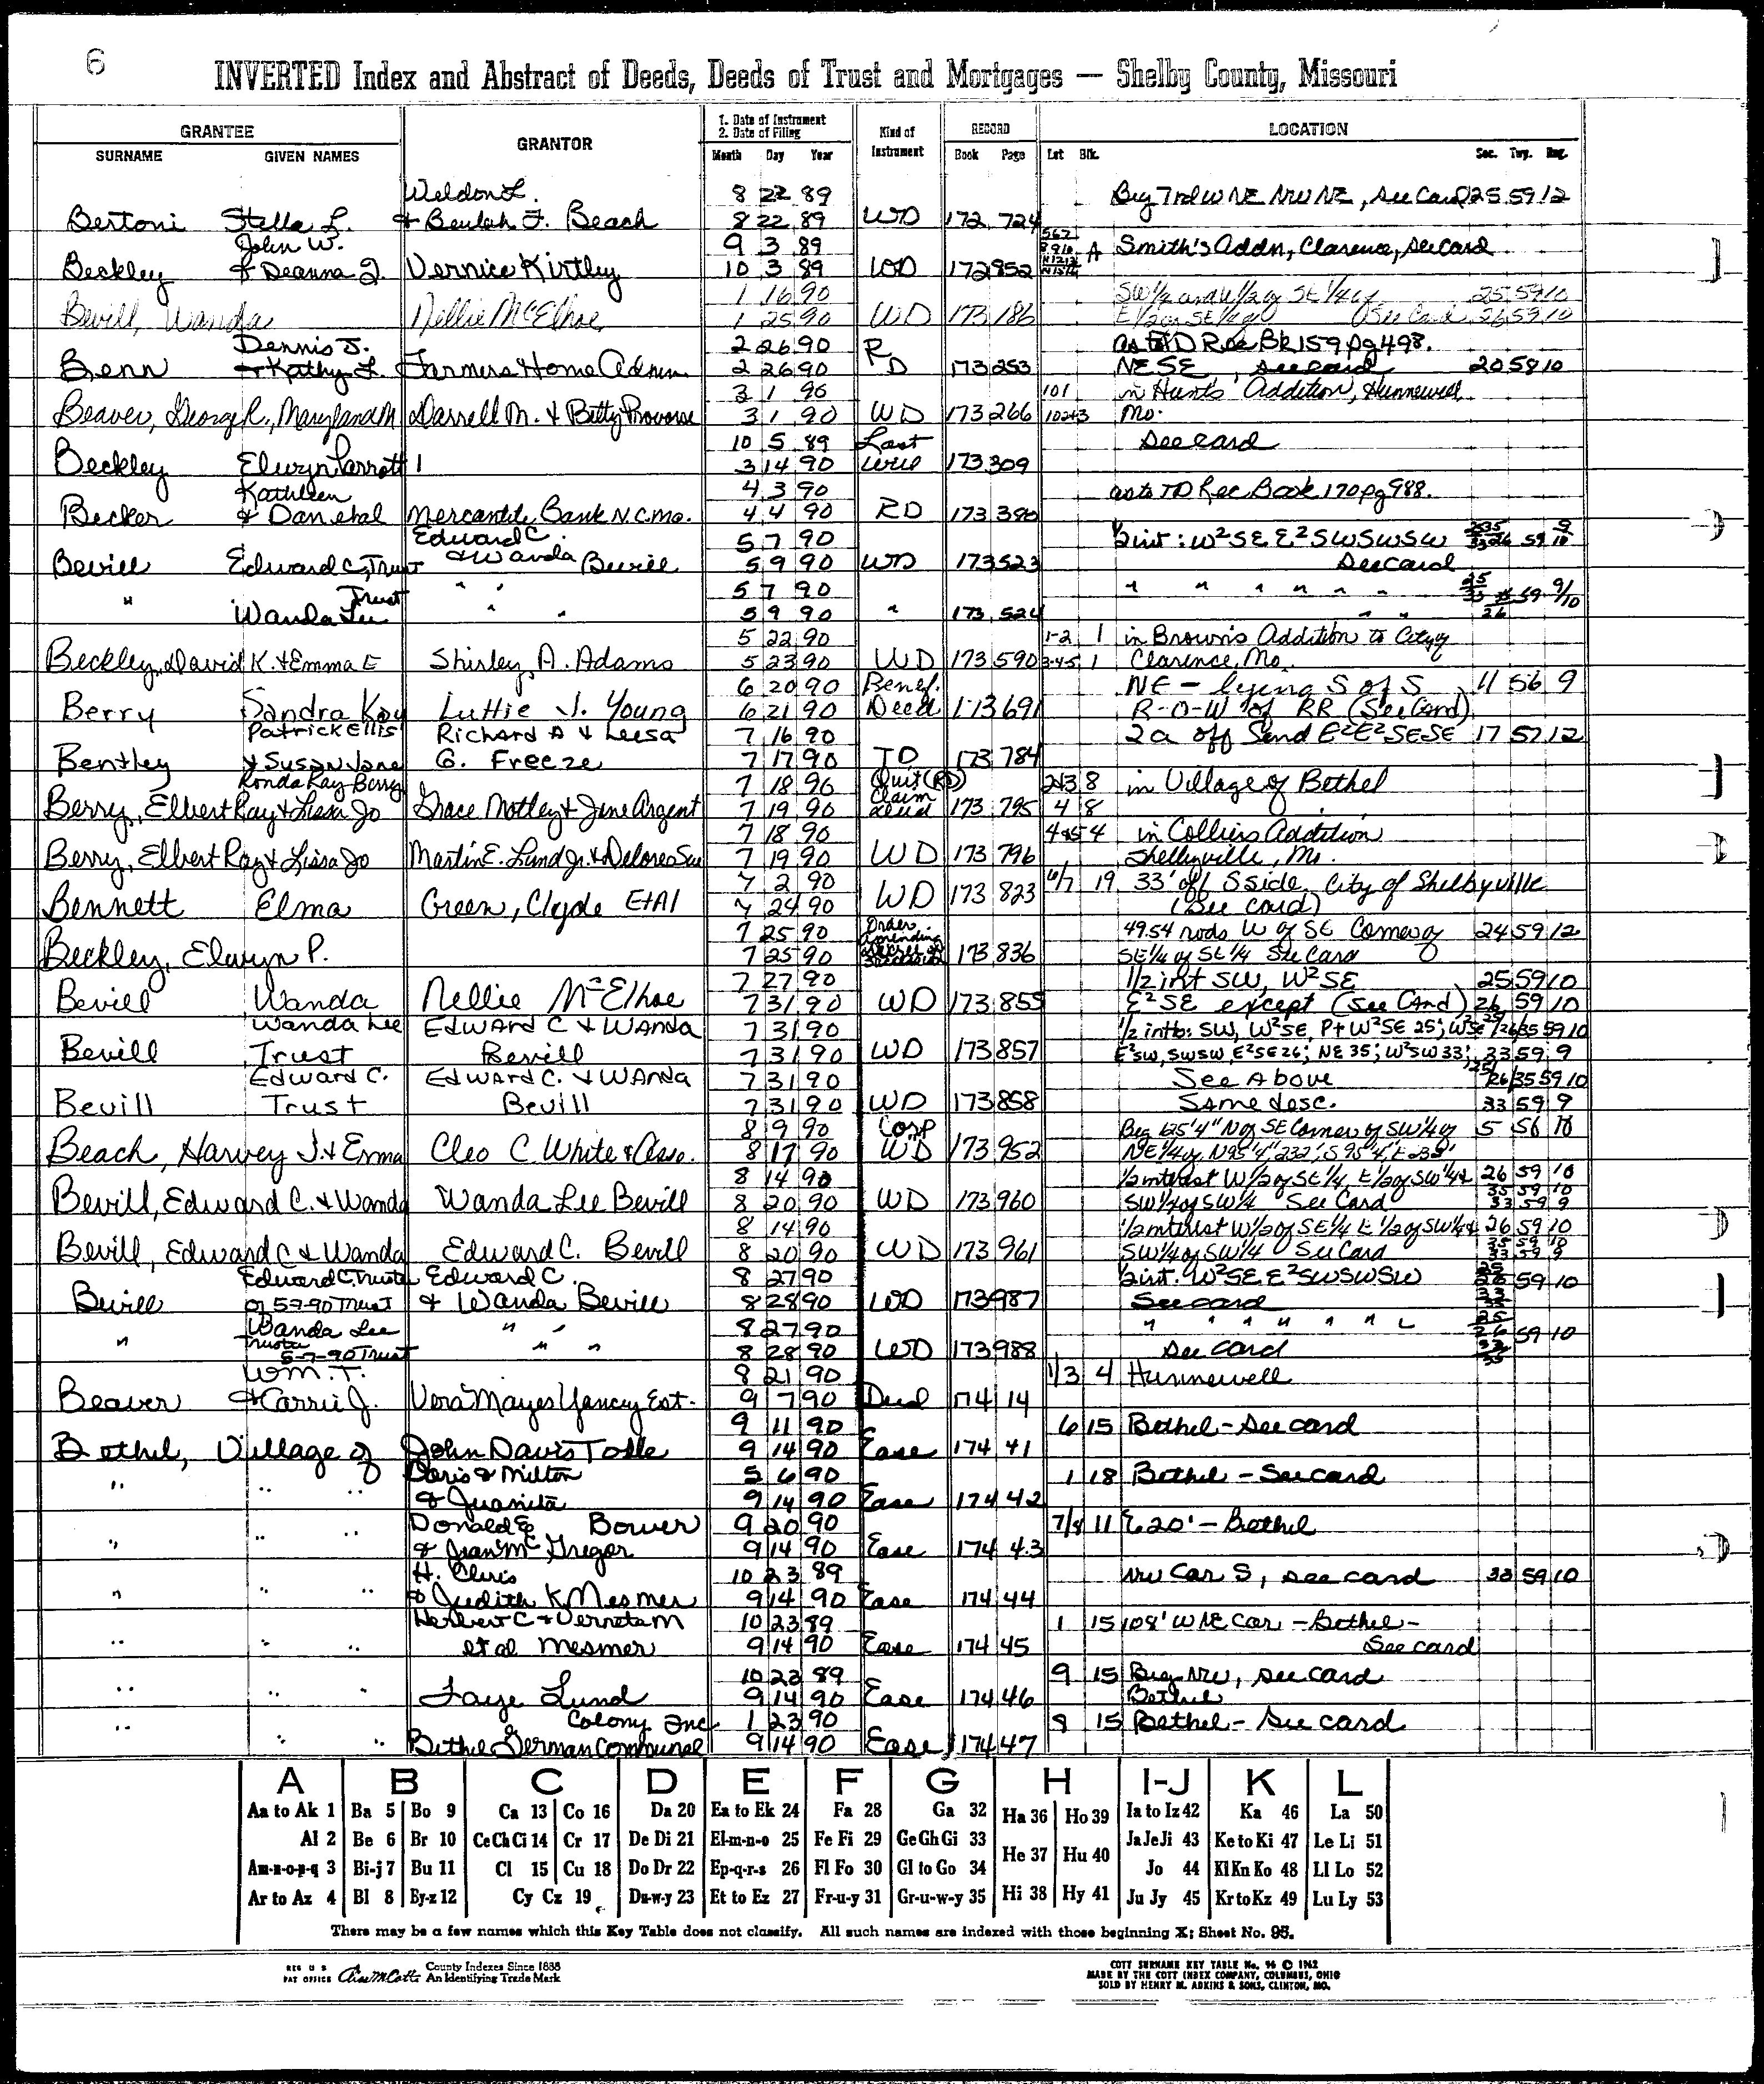 6
INVERTED Index and Abstract of Deeds, Deeds of Trust and Mortgages — Shelby County, Missouri
GRANTEE GRANTOR 1. Date of Instrument 2. Date of Filing Kind of Instrument RECORD LOCATION
SURNAME GIVEN NAMES Month Day Year Book Page Lot Blk. Sec. Twp. Rng.
Weldon L. 8 22 89 Beg 7 rd W NE NW NE, see Card 25 59 12
Bertoni Stella L. & Beulah F. Beach 8 22 89 WD 172 724
John W. 9 3 89 A Smith's Addn, Clarence, see card
Beckley & Deanna J. Vernice Kirtley 10 3 89 WD 172 852
1 16 90 SW 1/4 and W 1/2 of SE 1/4 of 25 59 10
Bevill, Wanda Nellie McElhoe 1 25 90 WD 173 186 E 1/2 of SE 1/4 of See Card 26 59 10
Dennis J. 2 26 90 as to TD Rec Bk 159 pg 498.
Benn & Kathy L. Farmers Home Admn 2 26 90 RD 173 253 NE SE, see card 20 58 10
3 1 90 101 in Hunt's Addition, Hunnewell
Beaver, George R., Maryland M Darrell M. & Betty Provorse 3 1 90 WD 173 266 102&3 Mo.
10 5 89 Last see card
Beckley Elwyn Parrott 3 14 90 Will 173 309
Kathleen 4 3 90 as to TD Rec Book 170 pg 988.
Becker & Dan etal Mercantile Bank N.C. Mo. 4 4 90 RD 173 380
Edward C. 5 7 90 1/2 int: W²SE E²SW SWSW 59
Bevill Edward C, Trust & Wanda Bevill 5 9 90 WD 173 523 See Card
" Trust " " 5 7 90 " " " " " " 59 9/10
Wanda Lee " " 5 9 90 " 173 524 " "
5 22 90 1-2 1 in Brown's Addition to City of
Beckley, David K. & Emma E Shirley A. Adams 5 23 90 WD 173 590 3-4-5 1 Clarence, Mo.
6 20 90 Benef. NE - lying S of S 11 56 9
Berry Sandra Kay Luttie J. Young 6 21 90 Deed 173 691 R-O-W of RR (See Card)
Patrick Ellis Richard A & Leesa 7 16 90 2a off S end E²E²SESE 17 57 12
Bentley & Susan Jane G. Freeze 7 17 90 TD 173 784
Ronda Kay Berry 7 18 90 Quit (RD) 2&3 8 in Village of Bethel
Berry, Elbert Ray & Lissa Jo Grace Motley & Jene Argent 7 19 90 Claim deed 173 795 4 8
7 18 90 4&5 4 in Collins Addition
Berry, Elbert Ray & Lissa Jo Martin E. Lund Jr. & Delores Sue 7 19 90 WD 173 796 Shelbyville, Mo.
7 2 90 6/7 19 33' off S side, City of Shelbyville
Bennett Elma Green, Clyde EtAl 7 24 90 WD 173 823 (See card)
7 25 90 Order Amending 49.54 rods W of SE Corner of 24 59 12
Beckley, Elwyn P. 7 25 90 173 836 SE 1/4 of SE 1/4 See Card
7 27 90 1/2 int SW, W²SE 25 59 10
Bevill Wanda Nellie McElhoe 7 31 90 WD 173 855 E²SE except (See Card) 26 59 10
Wanda Lee Edward C & Wanda 7 31 90 1/2 int to: SW, W²SE, Pt W²SE 25; W²SE 26/35 59 10
Bevill Trust Bevill 7 31 90 WD 173 857 E²SW, SWSW, E²SE 26; NE 35; W²SW 33; 33 59 9
Edward C. Edward C. & Wanda 7 31 90 See Above 26/35 59 10
Bevill Trust Bevill 7 31 90 WD 173 858 Same desc. 33 59 9
8 9 90 Corp Beg 125'4" N of SE Corner of SW 1/4 of 5 56 10
Beach, Harvey J. & Erma Cleo C White & Asso. 8 17 90 WD 173 952 NE 1/4 of, N 95'4", 232', S 95'4", E 232'
8 14 90 1/2 interest W 1/2 of SE 1/4, E 1/2 of SW 1/4 & 26 59 10
Bevill, Edward C. & Wanda Wanda Lee Bevill 8 20 90 WD 173 960 SW 1/4 of SW 1/4 See Card 35 59 10 33 59 9
8 14 90 1/2 interest W 1/2 of SE 1/4 E 1/2 of SW 1/4 & 26 59 10
Bevill, Edward C & Wanda Edward C. Bevill 8 20 90 WD 173 961 SW 1/4 of SW 1/4 See Card 35 59 10 33 59 9
Edward C. Trustee Edward C. 8 27 90 1/2 int. W²SE E²SW SWSW 25 26 59 10
Bevill of 5-7-90 Trust & Wanda Bevill 8 28 90 WD 173 987 See card 33 35
Wanda Lee " " 8 27 90 " " " " " " 25 26 59 10
" Trustee 5-7-90 Trust " " 8 28 90 WD 173 988 see card 33 35
Wm. T. 8 21 90 1/3 4 Hunnewell
Beaver & Carrie J. Vera Mayes Yancey Est. 9 7 90 Deed 174 14
9 11 90 6 15 Bethel - See card
Bethel, Village of John Davis Tolle 9 14 90 Ease 174 41
Doris & Milton 5 6 90 1 18 Bethel - See card
" " " & Juanita 9 14 90 Ease 174 42
Donald E Bower 9 20 90 7/8 11 E 20' - Bethel
" " " & Jean McGregor 9 14 90 Ease 174 43
H. Chris 10 23 89 NW Cor S, see card 33 59 10
" " " & Judith K Mesmer 9 14 90 Ease 174 44
Herbert C & Verneta M 10 23 89 1 15 108' W NE Cor - Bethel -
" " " et al Mesmer 9 14 90 Ease 174 45 See card
10 23 89 9 15 Beg NW, see card
" " " Faye Lund 9 14 90 Ease 174 46 Bethel
Colony Inc 1 23 90 8 15 Bethel - See card
" " " Bethel German Communal 9 14 90 Ease 174 47
A B C D E F G H I-J K L
Aa to Ak 1 Ba 5 Bo 9 Ca 13 Co 16 Da 20 Ea to Ek 24 Fa 28 Ga 32 Ha 36 Ho 39 Ia to Iz 42 Ka 46 La 50
Al 2 Be 6 Br 10 Ce Ch Ci 14 Cr 17 De Di 21 El-m-n-o 25 Fe Fi 29 Ge Gh Gi 33 He 37 Hu 40 Ja Je Ji 43 Ke to Ki 47 Le Li 51
Am-n-o-p-q 3 Bi-j 7 Bu 11 Cl 15 Cu 18 Do Dr 22 Ep-q-r-s 26 Fl Fo 30 Gl to Go 34 Jo 44 Kl Kn Ko 48 Ll Lo 52
Ar to Az 4 Bl 8 By-z 12 Cy Cz 19 Du-w-y 23 Et to Ez 27 Fr-u-y 31 Gr-u-w-y 35 Hi 38 Hy 41 Ju Jy 45 Kr to Kz 49 Lu Ly 53
There may be a few names which this Key Table does not classify. All such names are indexed with those beginning X; Sheet No. 95.
REG U S PAT OFFICE County Indexes Since 1888 An Identifying Trade Mark
COTT SURNAME KEY TABLE No. 96 © 1962
MADE BY THE COTT INDEX COMPANY, COLUMBUS, OHIO
SOLD BY HENRY M. ADKINS & SONS, CLINTON, MO.